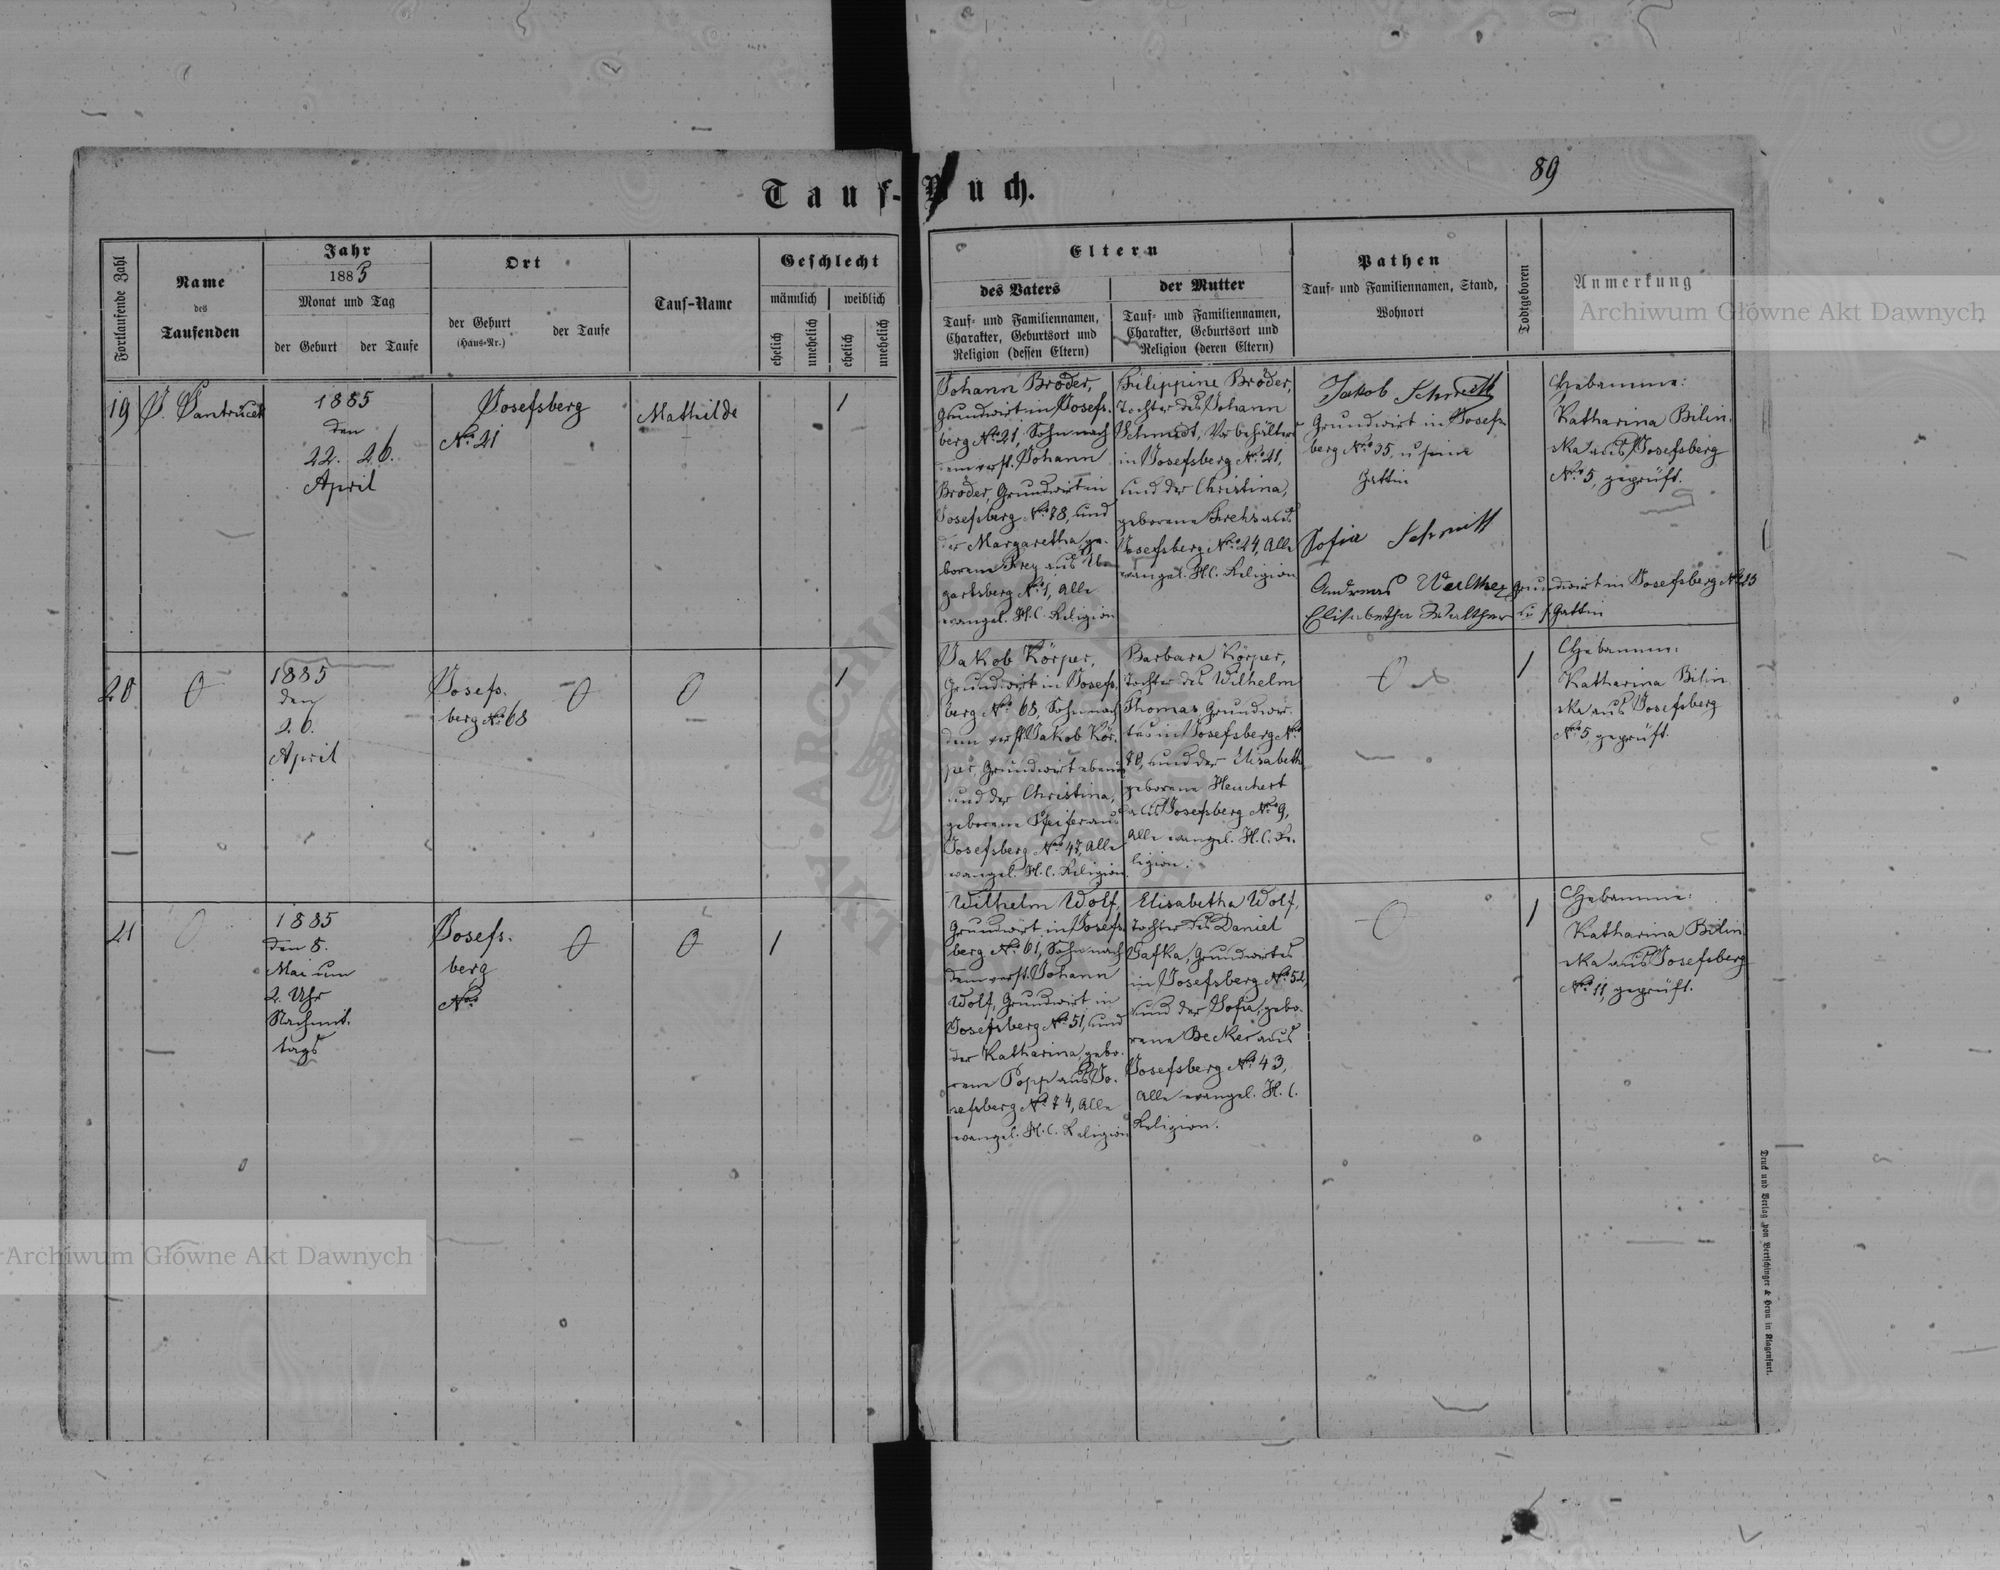 Tauf-Buch.
89
Fortlaufende Zahl
Name
des
Taufenden
Jahr
1885
Monat und Tag
der Geburt
der Taufe
Ort
der Geburt
(Haus-Nr.)
der Taufe
Tauf-Name
Geschlecht
männlich
weiblich
ehelich
unehelich
ehelich
unehelich
Eltern
des Vaters
Tauf- und Familiennamen,
Charakter, Geburtsort und
Religion (dessen Eltern)
der Mutter
Tauf- und Familiennamen,
Charakter, Geburtsort und
Religion (deren Eltern)
Pathen
Tauf- und Familiennamen, Stand,
Wohnort
Todtgeboren
Anmerkung
19
1885
den
22. 26.
April
Josefsberg
No. 21
Mathilde
1
Johann Broder,
Grundwirt in Josefs-
berg No. 21, Sohn nach
dem verst. Johann
Broder, Grundwirt in
Josefsberg No. 78, und
der Margaretha, ge-
borene Frey aus
No. 1, Alle
evangel. H. C. Religion
Filippine Broder,
Tochter des Johann
Schmidt,
in Josefsberg No. 21,
und der Christina,
geborene
Josefsberg No. 24, Alle
evangel. H. C. Religion
Jakob
Grundwirt in Josefs-
berg No. 35, u seine
Gattin
Sofia Schmitt
Andreas Walther, Grundwirt in Josefsberg No.
Elisabetha Walther u s. Gattin
Hebamme:
Katharina Bilin-
ska aus Josefsberg
No. 5, geprüft.
20
0
1885
den
26.
April
Josefs-
berg No. 68
0
0
1
Jakob Körper,
Grundwirt in Josefs-
berg No. 68, Sohn nach
dem verst. Jakob Kör-
per, Grundwirt
und der Christina,
geborene Pfeifer aus
Josefsberg No. 47, Alle
evangel. H. C. Religion.
Barbara Körper,
Tochter des Wilhelm
Thomas, Grundwir-
tes in Josefsberg No.
70, und der Elisabeth
geborene Heuchert
aus Josefsberg No. 9,
Alle evangel. H. C. Re-
ligion.
0
1
Hebamme:
Katharina Bilin-
ska aus Josefsberg
No. 5, geprüft.
21
0
1885
den 8.
Mai um
2. Uhr
Nachmit-
tags
Josefs-
berg
No.
0
0
1
Wilhelm Wolf,
Grundwirt in Josefs-
berg No. 61, Sohn nach
dem verst. Johann
Wolf, Grundwirt in
Josefsberg No. 51, und
der Katharina, gebo-
rene Popp aus Jo-
sefsberg No. 74, Alle
evangel. H. C. Religion
Elisabetha Wolf,
Tochter des Daniel
Gafka, Grundwirtes
in Josefsberg No. 52,
und der Sofia, gebo-
rene Becker aus
Josefsberg No. 43,
Alle evangel. H. C.
Religion.
0
1
Hebamme:
Katharina Bilin-
ska aus Josefsberg
No. 11, geprüft.
Archiwum Główne Akt Dawnych
Archiwum Główne Akt Dawnych